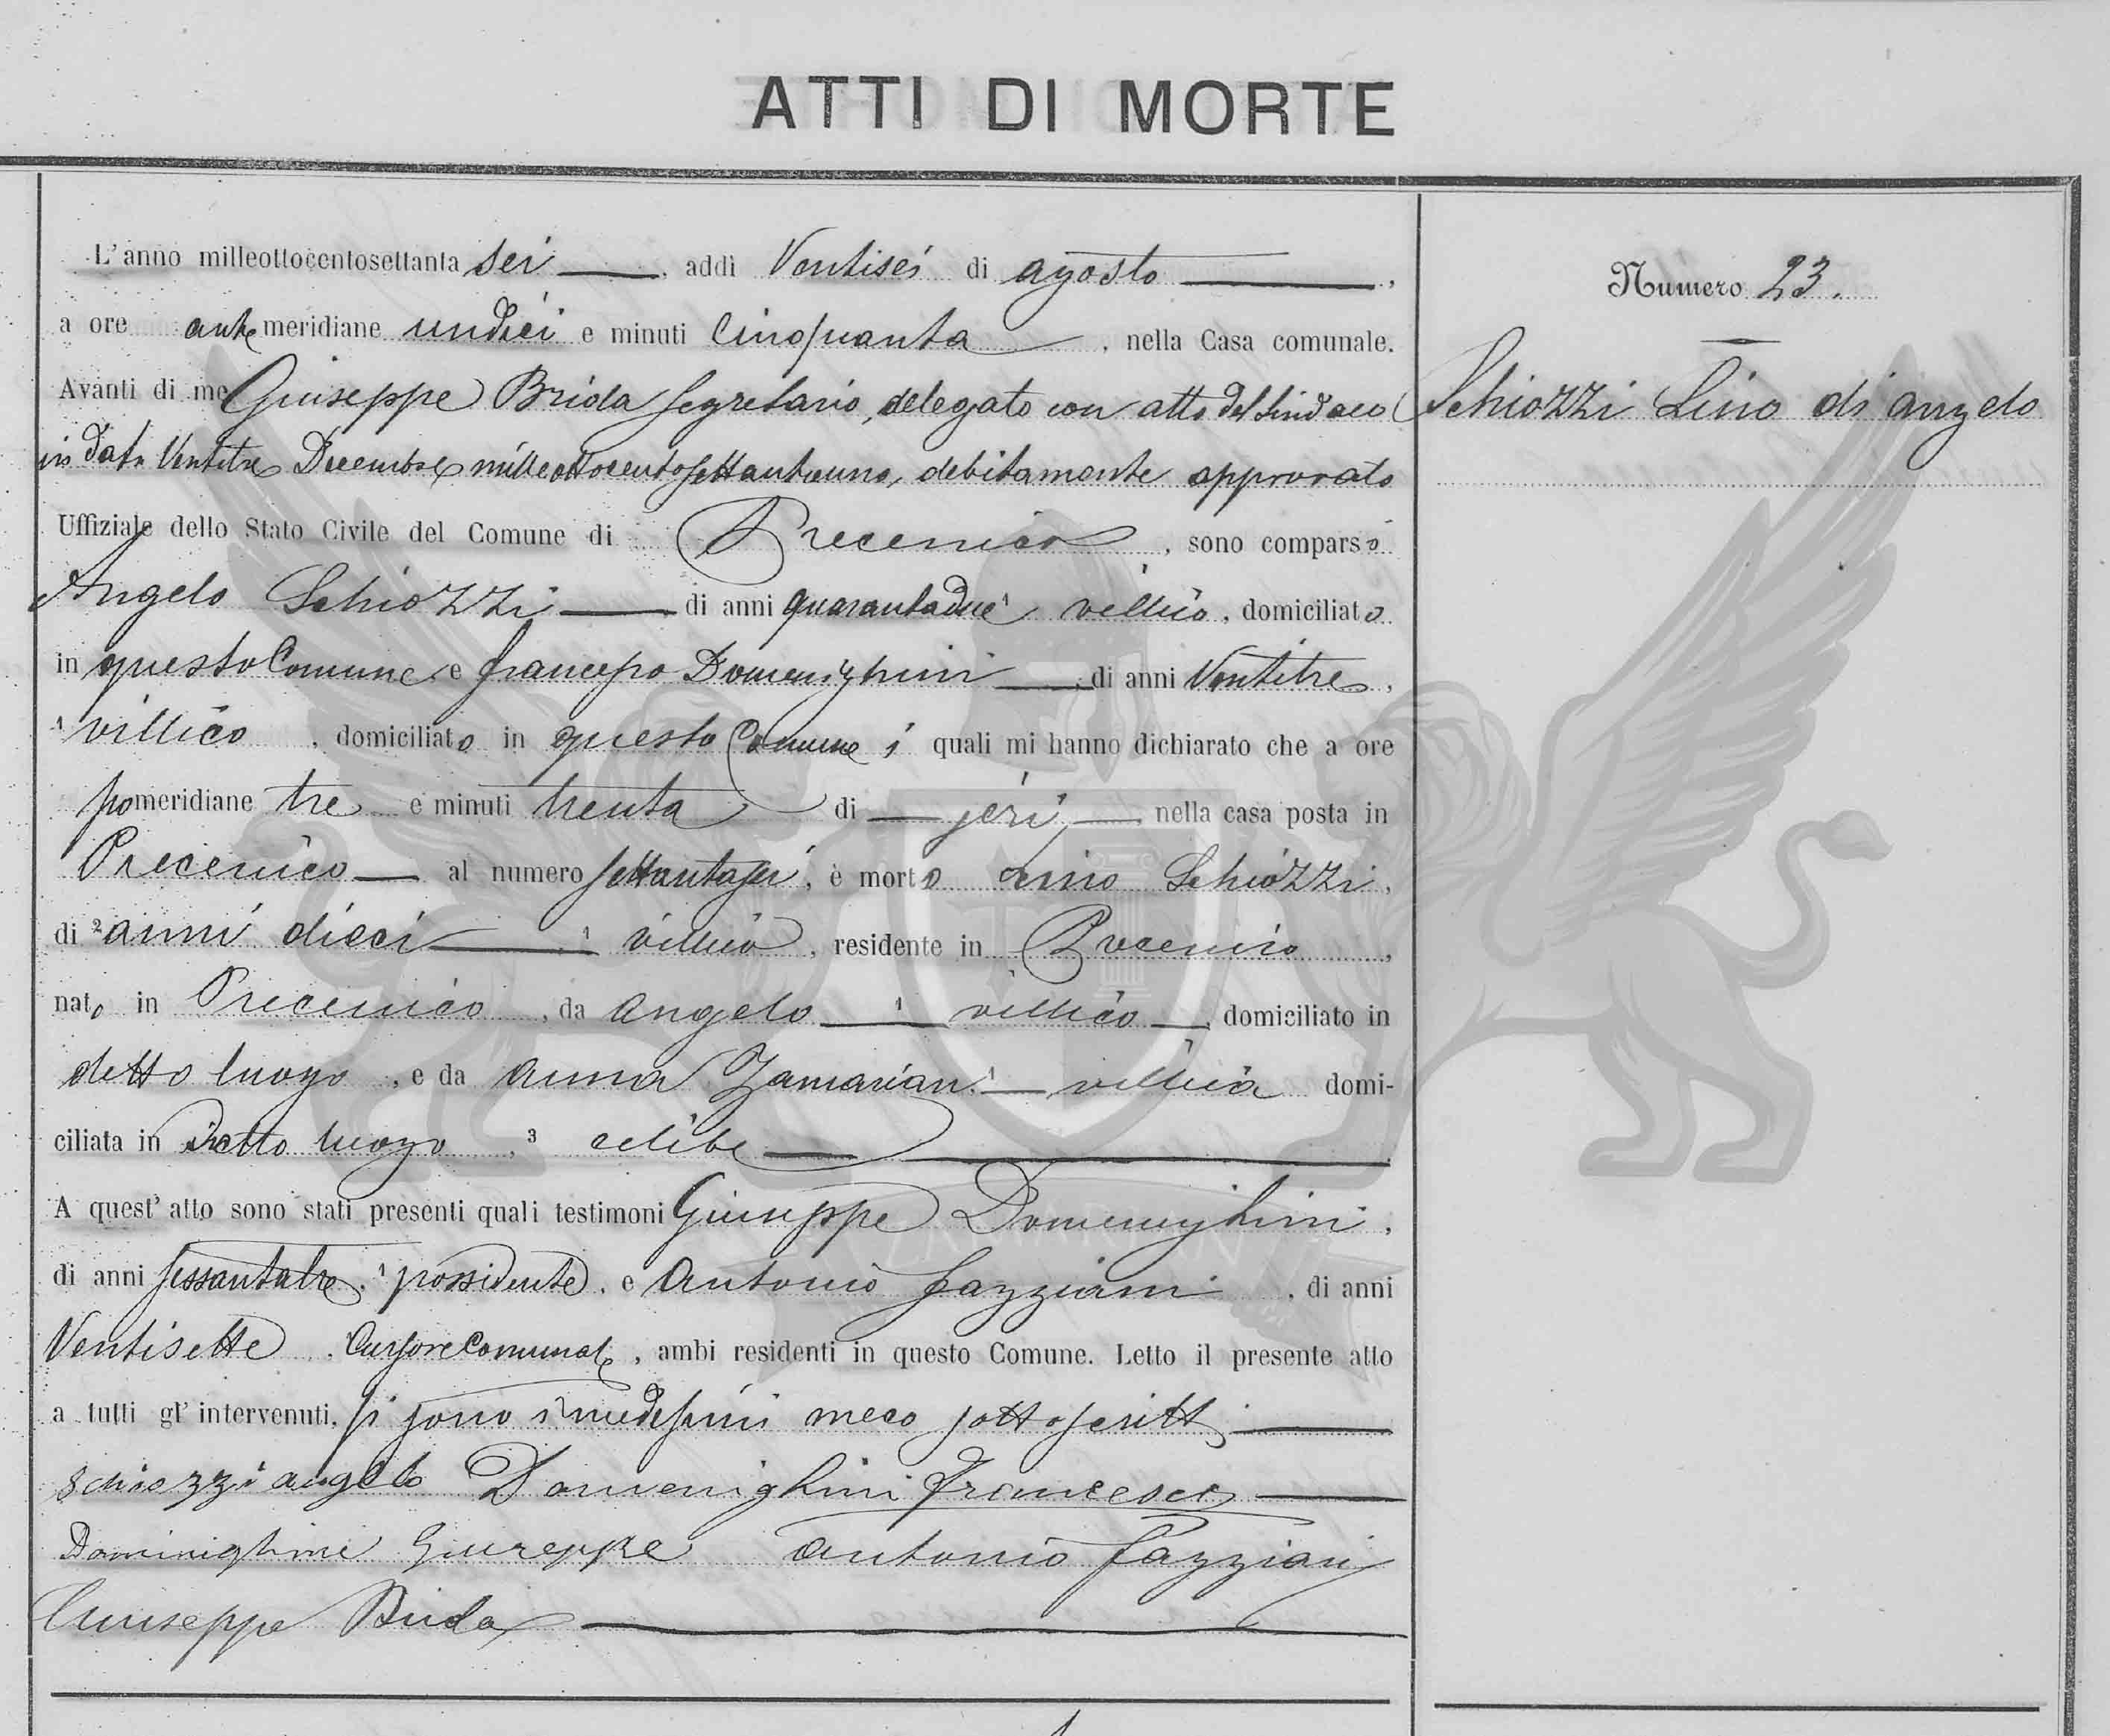 ATTI DI MORTE
L'anno milleottocentosettanta sei, addì Ventisei di agosto,
a ore antemeridiane undici e minuti Cinquanta, nella Casa comunale.
Avanti di me Giuseppe Brida Segretario, delegato con atto del Sindaco
in data Ventitre Decembre milleottocentosettantauno, debitamente approvato
Uffiziale dello Stato Civile del Comune di Precenico, sono comparsi
Angelo Schiozzi di anni quarantadue, 1 villico, domiciliato
in questo Comune e Francesco Domenighini, di anni Ventitre,
1 villico, domiciliato in questo Comune i quali mi hanno dichiarato che a ore
pomeridiane tre e minuti trenta di jeri, nella casa posta in
Precenico al numero settantasei, è morto Lino Schiozzi,
di 2 anni dieci 1 villico, residente in Precenico,
nato in Precenico, da Angelo 1 villico, domiciliato in
detto luogo, e da Anna Zamarian 1 villica domi-
ciliata in detto luogo, 3 celibe
A quest' atto sono stati presenti quali testimoni Giuseppe Domenighini,
di anni sessantatre, 1 possidente, e Antonio Fazziani, di anni
Ventisette, Cursore Comunale, ambi residenti in questo Comune. Letto il presente atto
a tutti gl' intervenuti, si sono i medesimi meco sottoscritti
Schiozzi angelo Domenighini Francesco
Dominighini Giuseppe Antonio Fazziani
Giuseppe Brida
Numero 23.
Schiozzi Lino di angelo